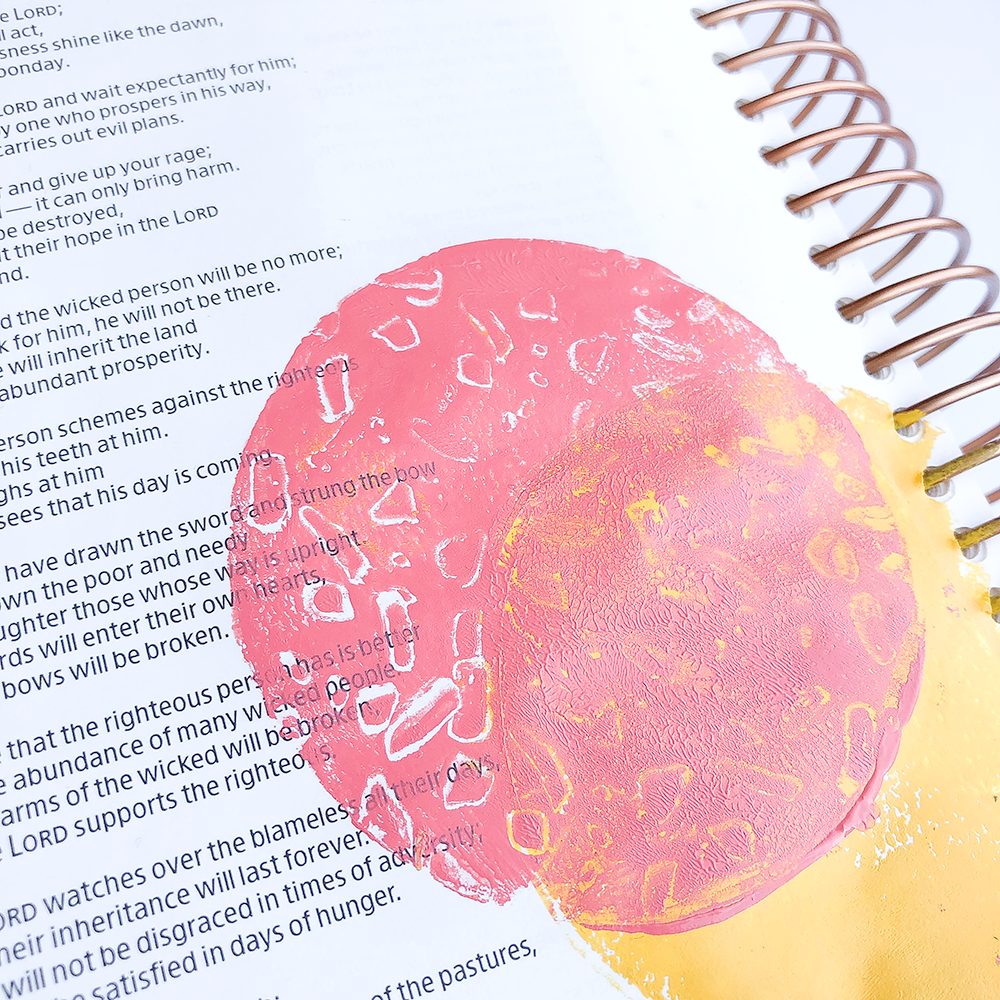 LORD;
act,
sness shine like the dawn,
oonday.
LORD and wait expectantly for him;
y one who prospers in his way,
carries out evil plans.
r and give up your rage;
— it can only bring harm.
be destroyed,
t their hope in the LORD
nd.
d the wicked person will be no more;
k for him, he will not be there.
e will inherit the land
abundant prosperity.
erson schemes against the righteous
his teeth at him.
ghs at him
sees that his day is coming.
have drawn the sword and strung the bow
wn the poor and needy
ughter those whose way is upright.
rds will enter their own hearts,
bows will be broken.
e that the righteous person has is better
e abundance of many wicked people.
arms of the wicked will be broken,
e LORD supports the righteous.
ORD watches over the blameless all their days,
heir inheritance will last forever.
will not be disgraced in times of adversity;
be satisfied in days of hunger.
of the pastures,